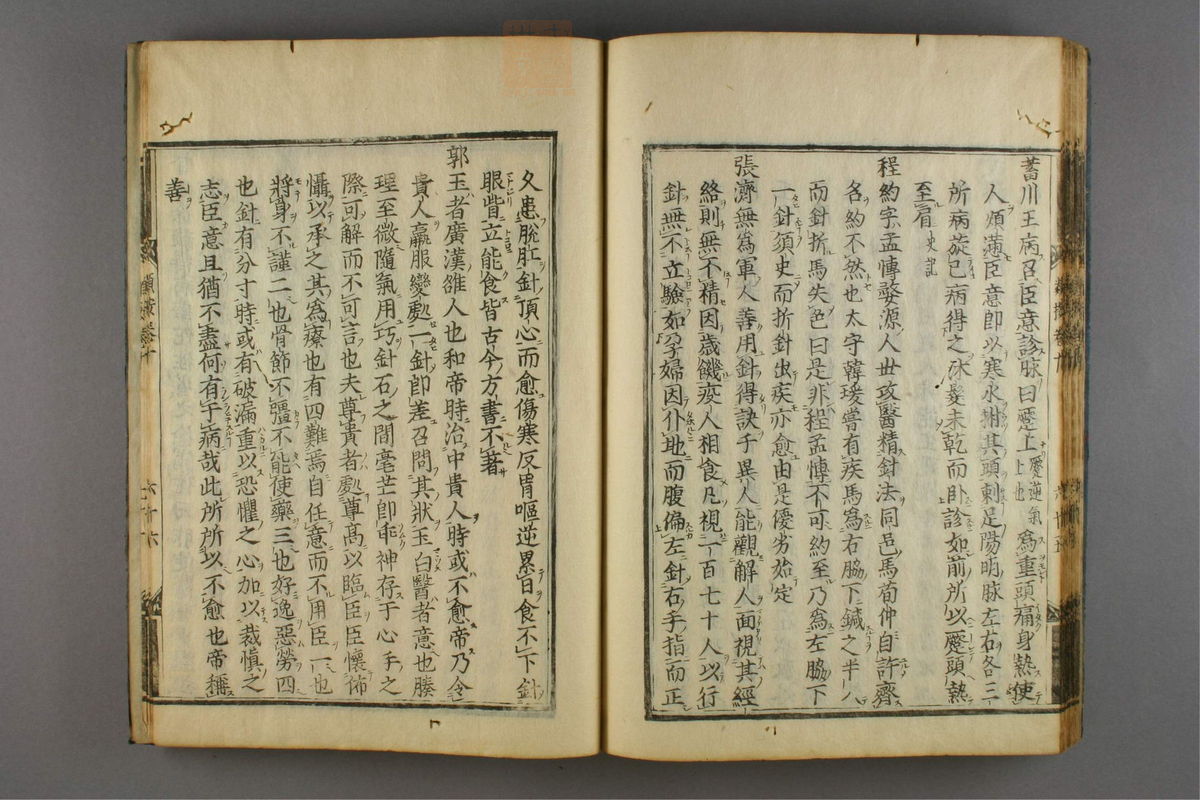 菑川王病召臣意診脉曰蹷上蹷逆氣上也為重頭痛身熱使
人煩懣臣意即以寒水拊其頭刺足陽明脉左右各三
所病旋已病得之沐髮未乾而卧診如前所以蹷頭熱
至肩史記
程約字孟博婺源人世攻醫精針法同邑馬荀仲自許齊
名約不然也太守韓瑗嘗有疾馬為右脇下鍼之半入
而針折馬失色曰是非程孟博不可約至乃為左脇下
一針須史而折針出疾亦愈由是優劣始定
張濟無為軍人善用針得訣于異人能觀解人面視其經
絡則無不精因歲饑疫人相食凡視一百七十人以行
針無不立驗如孕婦因仆地而腹偏左針右手指而正
久患脫肛針頂心而愈傷寒反胃嘔逆累日食不下針
眼眥立能食皆古今方書不著
郭玉者廣漢雒人也和帝時治中貴人時或不愈帝乃令
貴人羸服變處一針即差召問其狀玉曰醫者意也腠
理至微隨氣用巧針石之間毫芒即乖神存于心手之
際可解而不可言也夫尊貴者處尊高以臨臣臣懷怖
懾以承之其為療也有四難焉自任意而不用臣一也
將身不謹二也骨節不彊不能使藥三也好逸惡勞四
也針有分寸時或有破漏重以恐懼之心加以裁慎之
志臣意且猶不盡何有于病哉此所所以不愈也帝稱
善
六十六